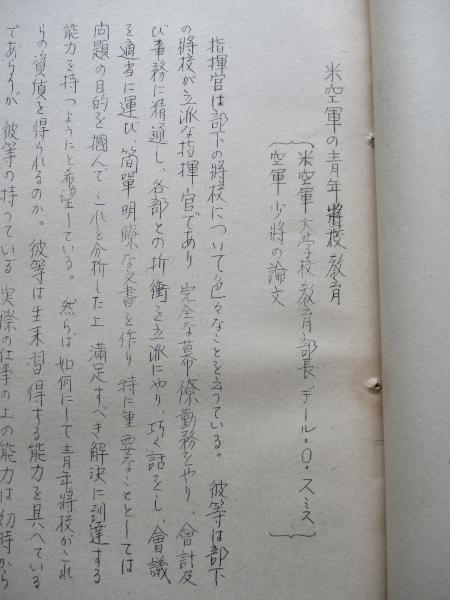 米空軍の青年將校教育
米空軍大学校教育部長デール・O・スミス
空軍少將の論文
指揮官は部下の將校について色々なことを言っている。 彼等は部下
の將校が立派な指揮官であり、完全な幕僚勤務をやり、會計及
び事務に精通し、各部との折衝を立派にやり、巧く話をし、會議
を適者に運び、簡單明瞭な文書を作り、特に重要なこととしては
問題の目的を掴んでこれを分析した上 滿足すべき解決に到達する
能力を持つようにと希望している。 然らば如何にして青年將校がこれ
らの資質を得られるのか。彼等は生来習得する能力を具へている
であろうが 彼等の持っている実際の仕事の上の能力は幼時から